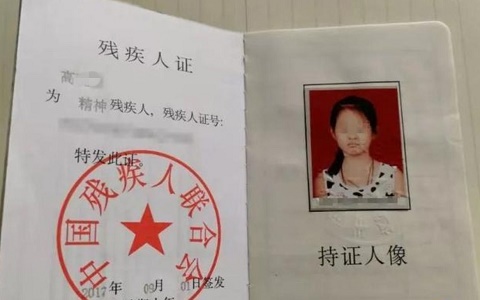 残疾人证
高
为 精神残疾人，残疾人证号:
特发此证。
中国残疾人联合会
2017年 09月 01日签发
持证人像